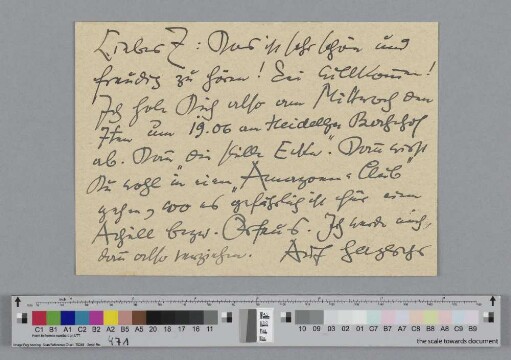 Lieber Z: Das ist sehr schön und
freudig zu hören! Sei willkommen!
Ich hole Dich also am Mittwoch den
7ten um 19.06 am Heidelbger Bahnhof
ab. Dann „die stille Ecke“. Dann wirst
Du wohl in einen „Amazonen-Club“
gehen, wo es gefährlich ist für einen
Achill bezw. Orfeus. Ich werde mich,
dann also verziehen. Auf
C1 B1 A1 C2 B2 A2 B5 A5 20 18 17 16 11
10 09 03 02 01 C7 A7 C8 B8 A8 C9 B9
the scale towards document
471